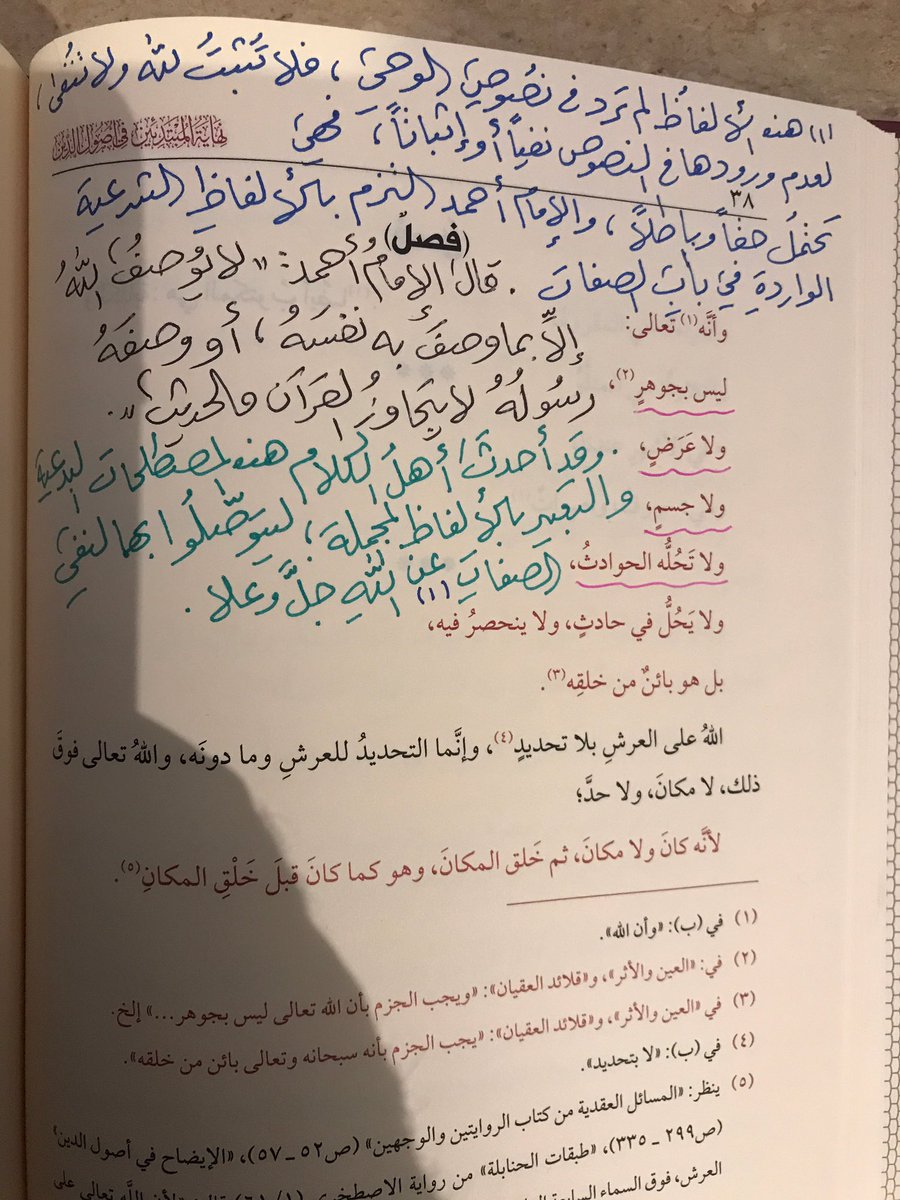 (١) هذه الألفاظ لم ترد في نصوص الوحي، فلا تُثبتُ لله ولا تُنفى،
لعدم ورودها في النصوص نفياً أو إثباتاً، فهي
نهاية المبتدئين في أصول الدين
٣٨
تحتمل حقاً وباطلاً، والإمام أحمد التزم بالألفاظ الشرعية
الواردة في باب الصفات.
(فصل)
وأنَّه(١) تعالى:
قال الإمام أحمد: «لا يُوصفُ اللهُ
إلاَّ بما وصفَ به نفسَهُ، أو وصفَهُ
رسُولُهُ لا يتجاوزُ القرآن والحديث».
ليس بجوهرٍ(٢)،
ولا عَرَضٍ،
ولا جسمٍ،
ولا تَحُلُّه الحوادثُ،
. وقد أحدثَ أهلُ الكلام هذه المصطلحات البدعية
والتعبير بالألفاظ المجملة، ليتوصَّلُوا بها لنفي
الصفات(١) عن اللهِ جلَّ وعلا.
ولا يَحُلُّ في حادثٍ، ولا ينحصرُ فيه،
بل هو بائنٌ من خلقِه(٣).
اللهُ على العرشِ بلا تحديدٍ(٤)، وإنَّما التحديدُ للعرشِ وما دونَه، واللهُ تعالى فوقَ
ذلك، لا مكانَ، ولا حدَّ؛
لأنَّه كانَ ولا مكانَ، ثم خَلق المكانَ، وهو كما كانَ قبلَ خَلْقِ المكانِ(٥).
(١) في (ب): «وأن الله».
(٢) في: «العين والأثر»، و«قلائد العقيان»: «ويجب الجزم بأن الله تعالى ليس بجوهر...» إلخ.
(٣) في «العين والأثر»، و«قلائد العقيان»: «يجب الجزم بأنه سبحانه وتعالى بائن من خلقه».
(٤) في (ب): «لا بتحديد».
(٥) ينظر: «المسائل العقدية من كتاب الروايتين والوجهين» (ص٥٢ ـ ٥٧)، «الإيضاح في أصول الدين»
(ص٢٩٩ ـ ٣٣٥)، «طبقات الحنابلة» من رواية الاصطخري
العرش، فوق السماء السابعة